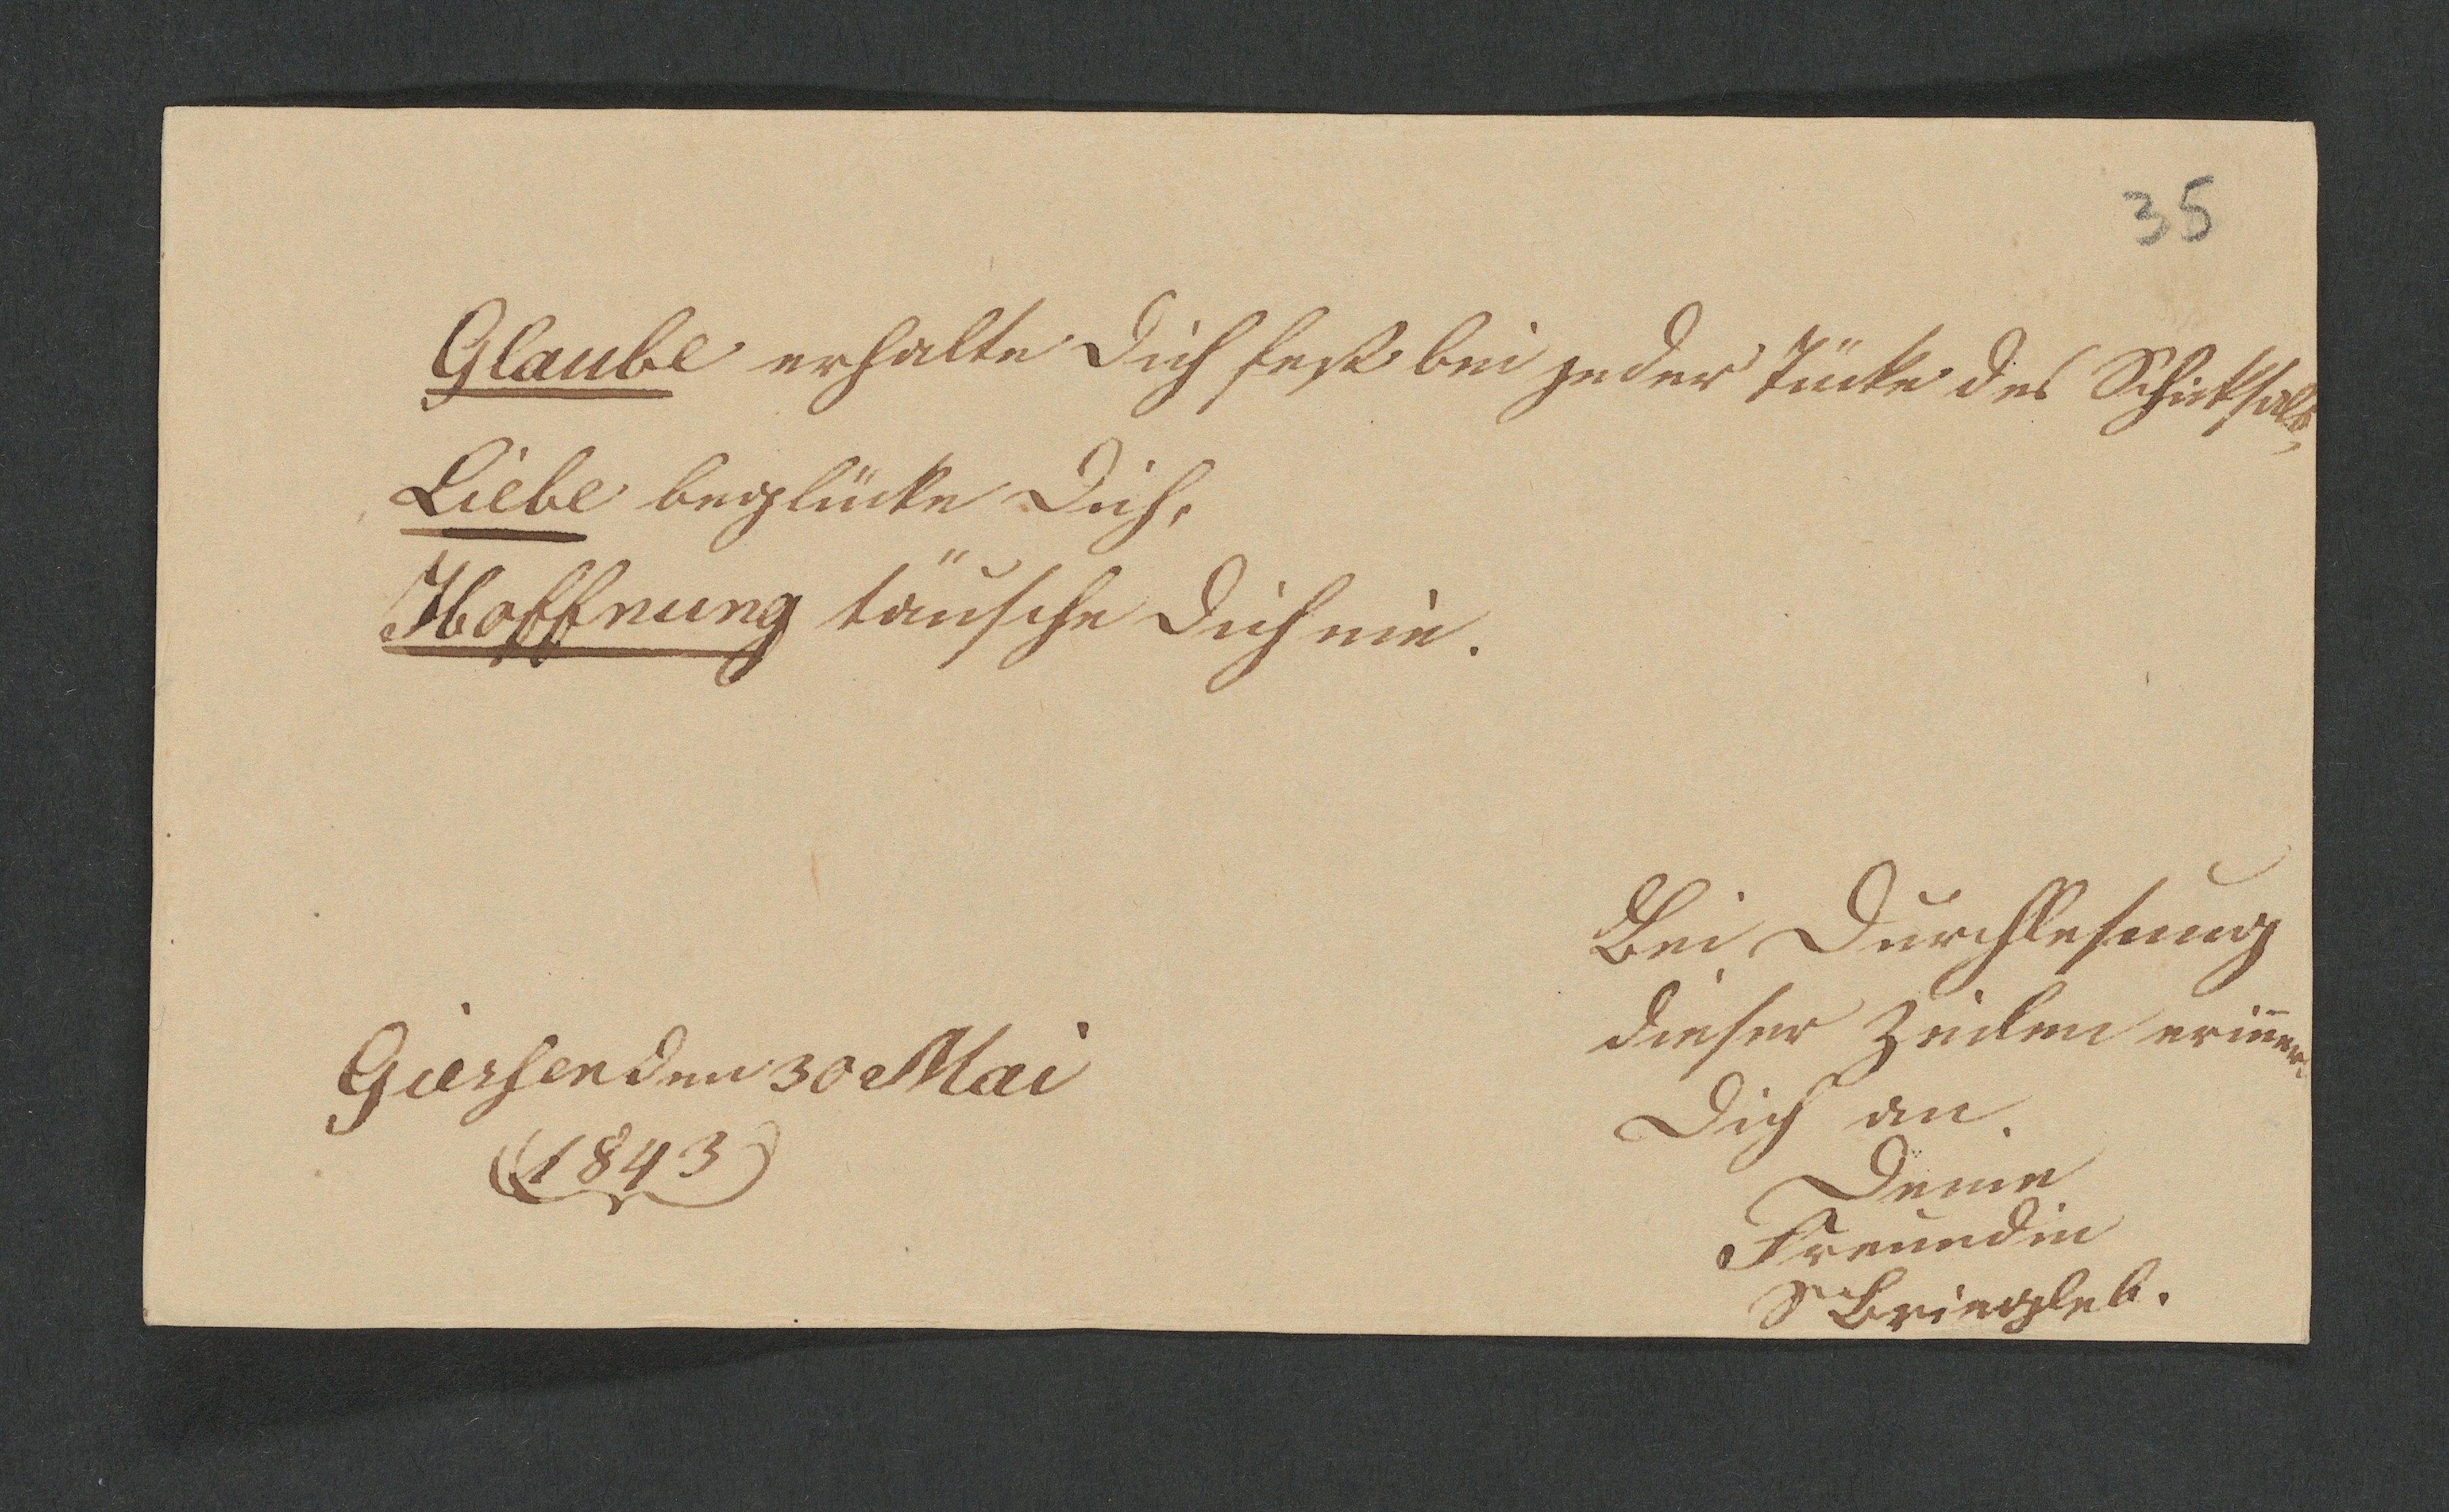 35
Glaube erhalte Dich fest bei jeder Tücke des Schicksals,
Liebe beglücke Dich,
Hoffnung täusche Dich nie.
Bei Durchlesung
dieser Zeilen erinnere
Dich an
Deine
Freundin
S Briegleb.
Giessen den 30 Mai
(1843)